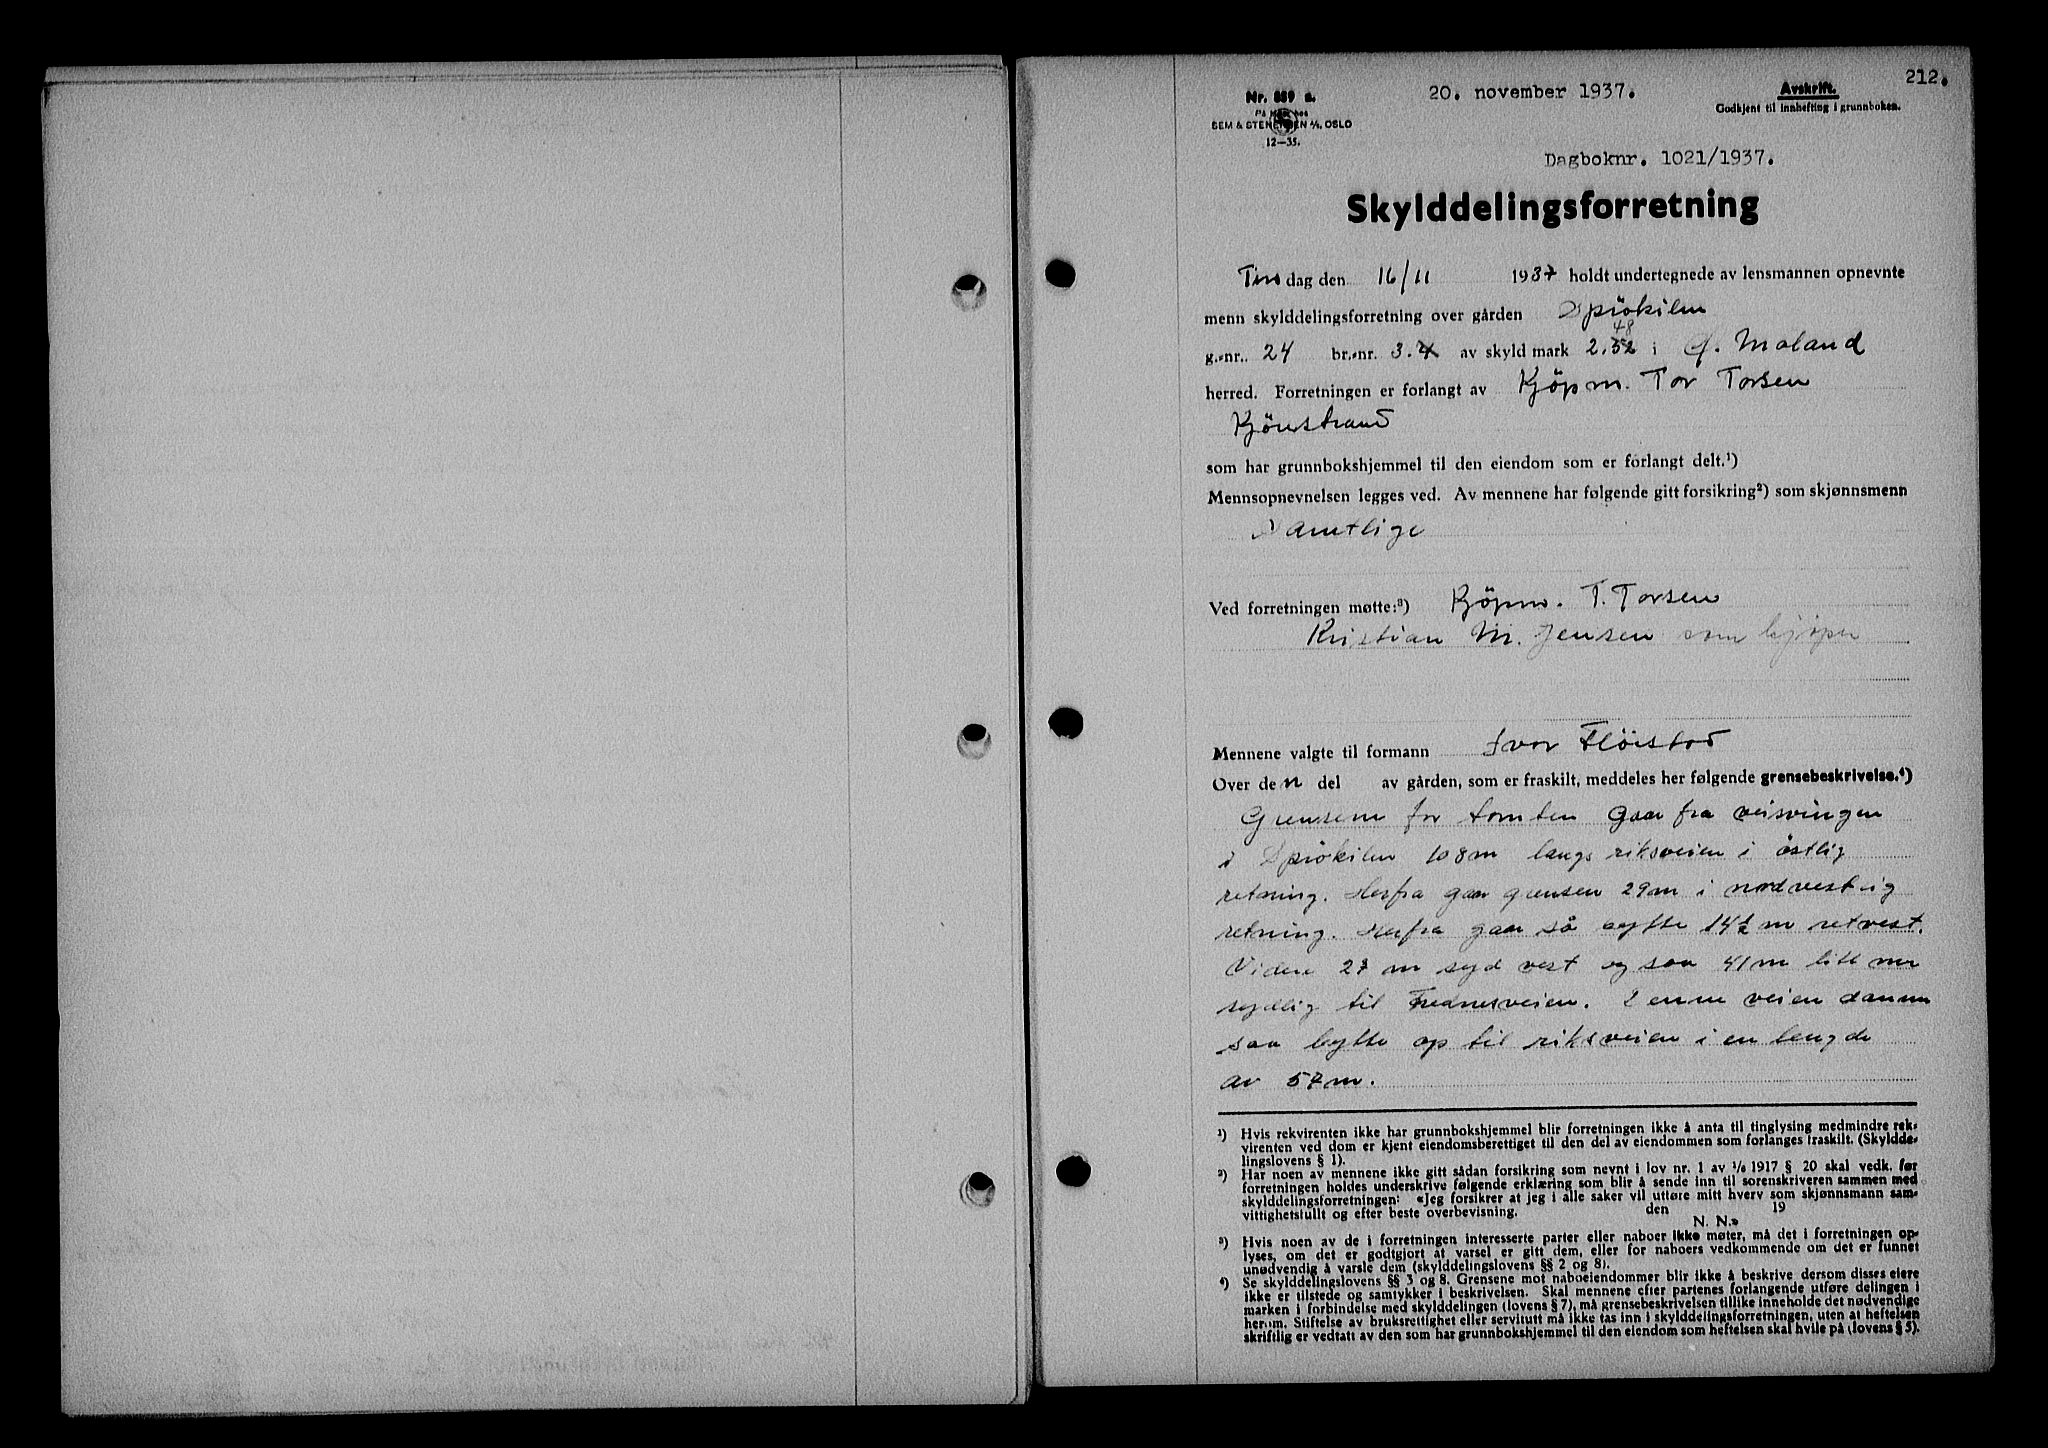 212.
20. november 1937.
Avskrift.
Nr. 889 a.
Godkjent til innhefting i grunnboken.
På hos
SEM & STENERSEN A/S, OSLO
12—35.
Dagboknr. 1021/1937.
Skylddelingsforretning
Tirsdag den 16/11 1937 holdt undertegnede av lensmannen opnevnte
menn skylddelingsforretning over gården Spiøkilen
48
g.-nr. 24 br.-nr. 3.4 av skyld mark 2.52 i Ø. Moland
herred. Forretningen er forlangt av Kjöpm. Tor Torsen
Kjönstrand
som har grunnbokshjemmel til den eiendom som er forlangt delt.¹)
Mennsopnevnelsen legges ved. Av mennene har følgende gitt forsikring²) som skjønnsmenn
Samtlige
Ved forretningen møtte:³) Kjöpm. T. Torsen
Kristian M. Jensen som kjöper
Mennene valgte til formann Ivar Flöistad
Over den del av gården, som er fraskilt, meddeles her følgende grensebeskrivelse.⁴)
Grensene for tomten gaar fra veisvingen
i Spiøkilen 108m langs riksveien i östlig
retning. Herfra gaar grensen 29m i nordvestlig
retning. Herfra gaar så bytte 14½ m retvest.
Videre 27 m syd vest og saa 41m litt mer
sydlig til veien. Denne veien danner
saa bytte op til riksveien i en lengde
av 57m.
¹) Hvis rekvirenten ikke har grunnbokshjemmel blir forretningen ikke å anta til tinglysing medmindre rek-
virenten ved dom er kjent eiendomsberettiget til den del av eiendommen som forlanges fraskilt. (Skyldde-
lingslovens § 1).
²) Har noen av mennene ikke gitt sådan forsikring som nevnt i lov nr. 1 av 1/6 1917 § 20 skal vedk. før
forretningen holdes underskrive følgende erklæring som blir å sende inn til sorenskriveren sammen med
skylddelingsforretningen: «Jeg forsikrer at jeg i alle saker vil utføre mitt hverv som skjønnsmann sam-
vittighetsfullt og efter beste overbevisning. den 19
N. N.»
³) Hvis noen av de i forretningen interesserte parter eller naboer ikke møter, må det i forretningen op-
lyses, om det er godtgjort at varsel er gitt dem, eller for naboers vedkommende om det er funnet
unødvendig å varsle dem (skylddelingslovens §§ 2 og 8).
⁴) Se skylddelingslovens §§ 3 og 8. Grensene mot naboeiendommer blir ikke å beskrive dersom disses eiere
ikke er tilstede og samtykker i beskrivelsen. Skal mennene efter partenes forlangende utføre delingen i
marken i forbindelse med skylddelingen (lovens § 7), må grensebeskrivelsen tillike inneholde det nødvendige
herom. Stiftelse av bruksrettighet eller servitutt må ikke tas inn i skylddelingsforretningen, uten at heftelsen
skriftlig er vedtatt av den som har grunnbokshjemmel til den eiendom som heftelsen skal hvile på (lovens § 5).